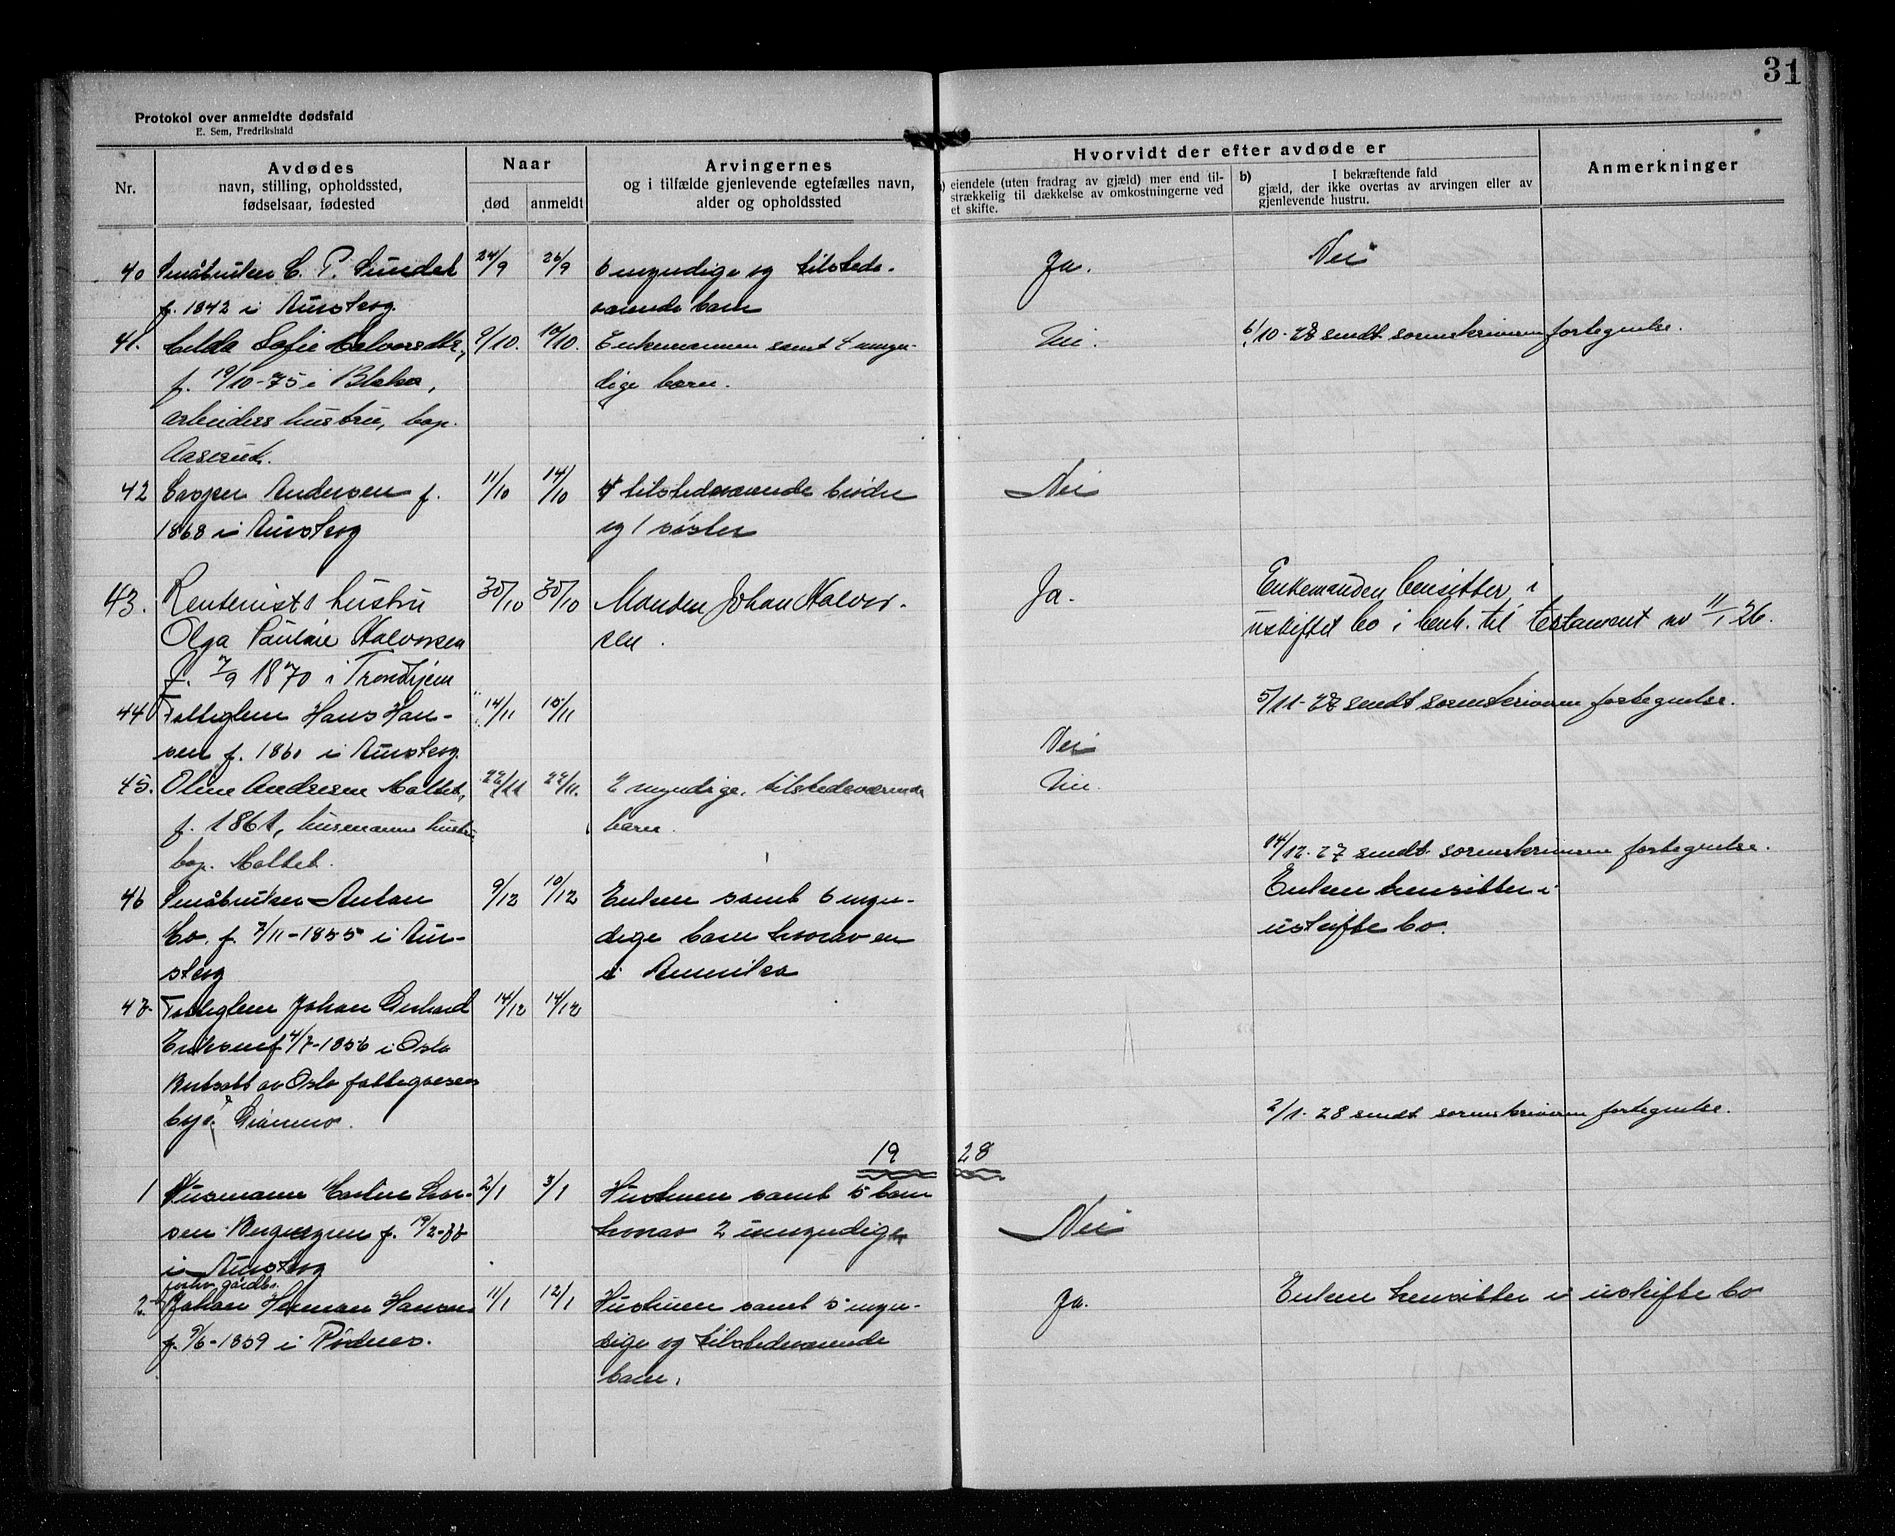 31
Protokol over anmeldte dødsfald
E. Sem, Fredrikshald
Nr.
Avdødes
navn, stilling, opholdssted,
fødselsaar, fødested
Naar
død
anmeldt
Arvingernes
og i tilfælde gjenlevende egtefælles navn,
alder og opholdssted
Hvorvidt der efter avdøde er
eiendele (uten fradrag av gjæld) mer end til-
strækkelig til dækkelse av omkostningerne ved
et skifte.
b) I bekræftende fald
gjæld, der ikke overtas av arvingen eller av
gjenlevende hustru.
Anmerkninger
40 Småbruker C. P. Sundet 24/9 26/9 6 myndige og tilstede- Ja. Nei
f. 1842 i Aurskog. værende barn
41. Sofie Halvorsdtr., 9/10. 10/10. Enkemannen samt 4 myn- Nei. 6/10-28 sendt sorenskriveren fortegnelse.
f. 19/10-75 i Blaker, dige barn.
arbeiders hustru, bop.
Aaserud.
42 Casper Andersen f. 11/10 14/10 4 tilstedeværende brødre Nei
1868 i Aurskog og 1 søster
43. Rentenists hustru 30/10 30/10 Manden Johan Halvor- Ja. Enkemanden hensitter i
Olga Pauline Halvorsen sen. uskiftet bo i henh. til testament av 11/1 26.
f. 7/9 1870 i Trondhjem
5/11-28 sendt sorenskriveren fortegnelse.
44 Fattiglem Hans Han- 14/11 15/11
sen f. 1860 i Aurskog. Nei
45. Oline Andresen Moltet, 22/11 22/11. 2 myndige, tilstedeværende Nei.
f. 1861, husmanns hustru barn.
bop. Moltet.
14/12-27 sendt sorenskriveren fortegnelse.
46 Småbruker Anton 9/12 10/12 Enken samt 6 myn- Enken hensitter i
Bo. f. 7/11-1855 i Aur- dige barn hvorav en uskifte bo.
skog i Amerika
47. Fattiglem Johan Gerhard 14/12 14/12
Eriksen f 4/7-1856 i Oslo
Bortsatt av Oslo fattigvesen
2/1-28 sendt sorenskriveren fortegnelse.
19 28
1 Husmann Lar- 2/1 3/1 Hustruen samt 5 barn
sen f. 19/2- hvorav 2 umyndige Nei
i Aurskog
forhv. gårdbr.
2. Johan Herman Hansen 11/1 12/1 Hustruen samt 5 myn- Ja. Enken hensitter i uskifte bo
f. 9/6-1859 i Rødnes. dige og tilstedeværende
barn.